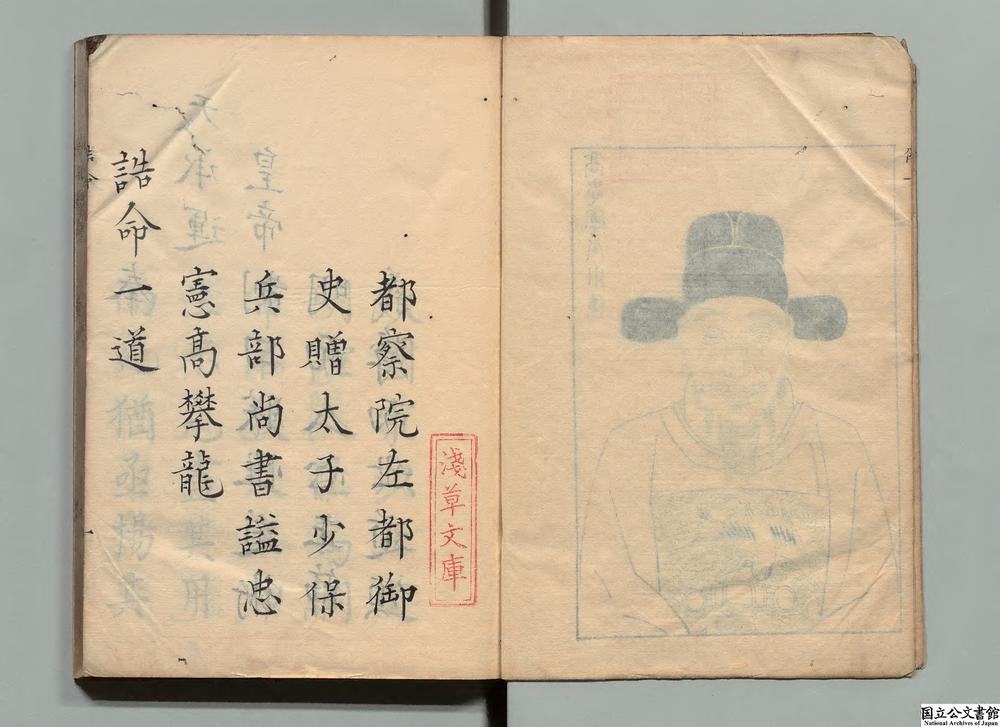 都察院左都御
史贈太子少保
兵部尚書謚忠
憲高攀龍
誥命一道
淺草文庫
国立公文書館
National Archives of Japan